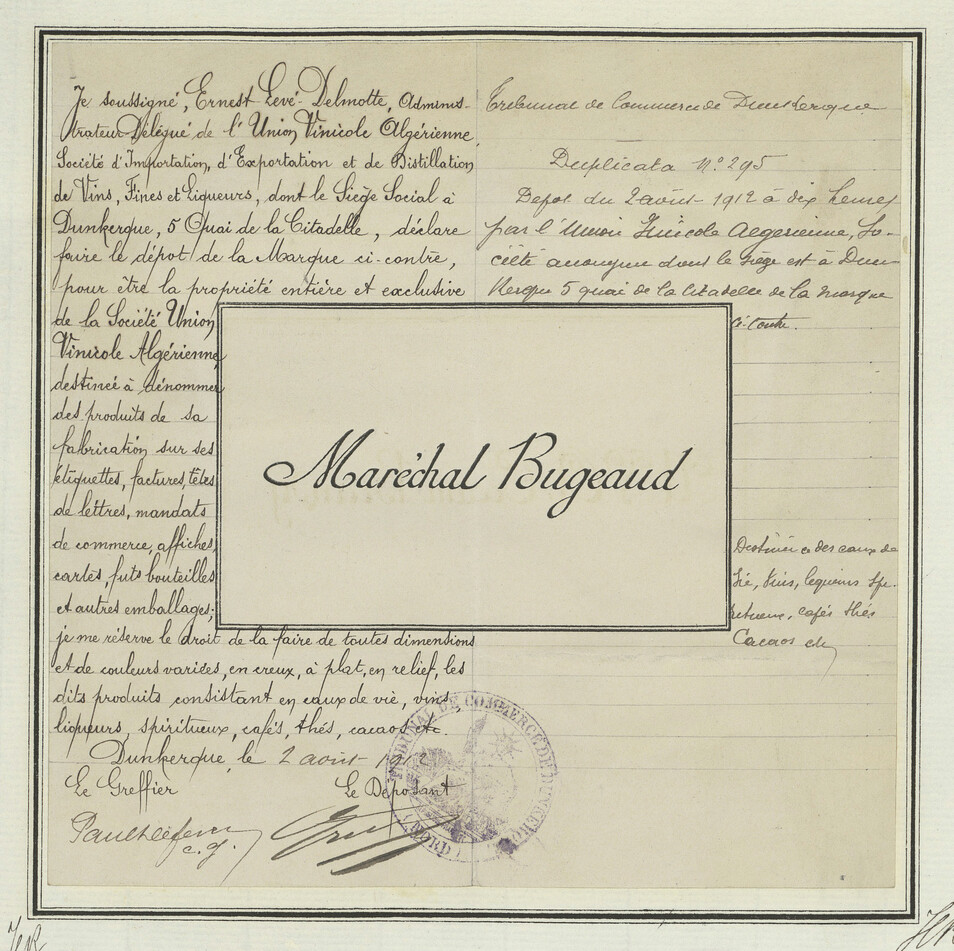 Je soussigné, Ernest Levé-Delmotte, Adminis-
trateur Délégué de l'Union Vinicole Algérienne,
Société d'Importation, d'Exportation et de Distillation
de Vins, Fines et Liqueurs, dont le Siège Social à
Dunkerque, 5 Quai de la Citadelle, déclare
faire le dépôt de la Marque ci-contre,
pour être la propriété entière et exclusive
de la Société Union
Vinicole Algérienne,
destinée à dénommer
des produits de sa
fabrication sur ses
étiquettes, factures, têtes
de lettres, mandats
de commerce, affiches,
cartes, fûts bouteilles
et autres emballages;
je me réserve le droit de la faire de toutes dimensions
et de couleurs variées, en creux, à plat, en relief, les
dits produits consistant en eaux de vie, vins,
liqueurs, spiritueux, cafés, thés, cacaos etc.
Dunkerque, le 2 août 1912
Le Greffier
Le Déposant
c.g.
Maréchal Bugeaud
Tribunal de Commerce de Dunkerque
Duplicata N° 295
Depot du 2 août 1912 à dix heures
par l'Union Vinicole Algerienne, So-
ciété anonyme dont le siège est à Dun-
kerque 5 quai de la Citadelle de la marque
ci-contre.
Destinée à des eaux de
vie, vins, liqueurs spi-
ritueux, cafés thés
Cacaos etc
TRIBUNAL DE COMMERCE DE DUNKERQUE
(NORD)